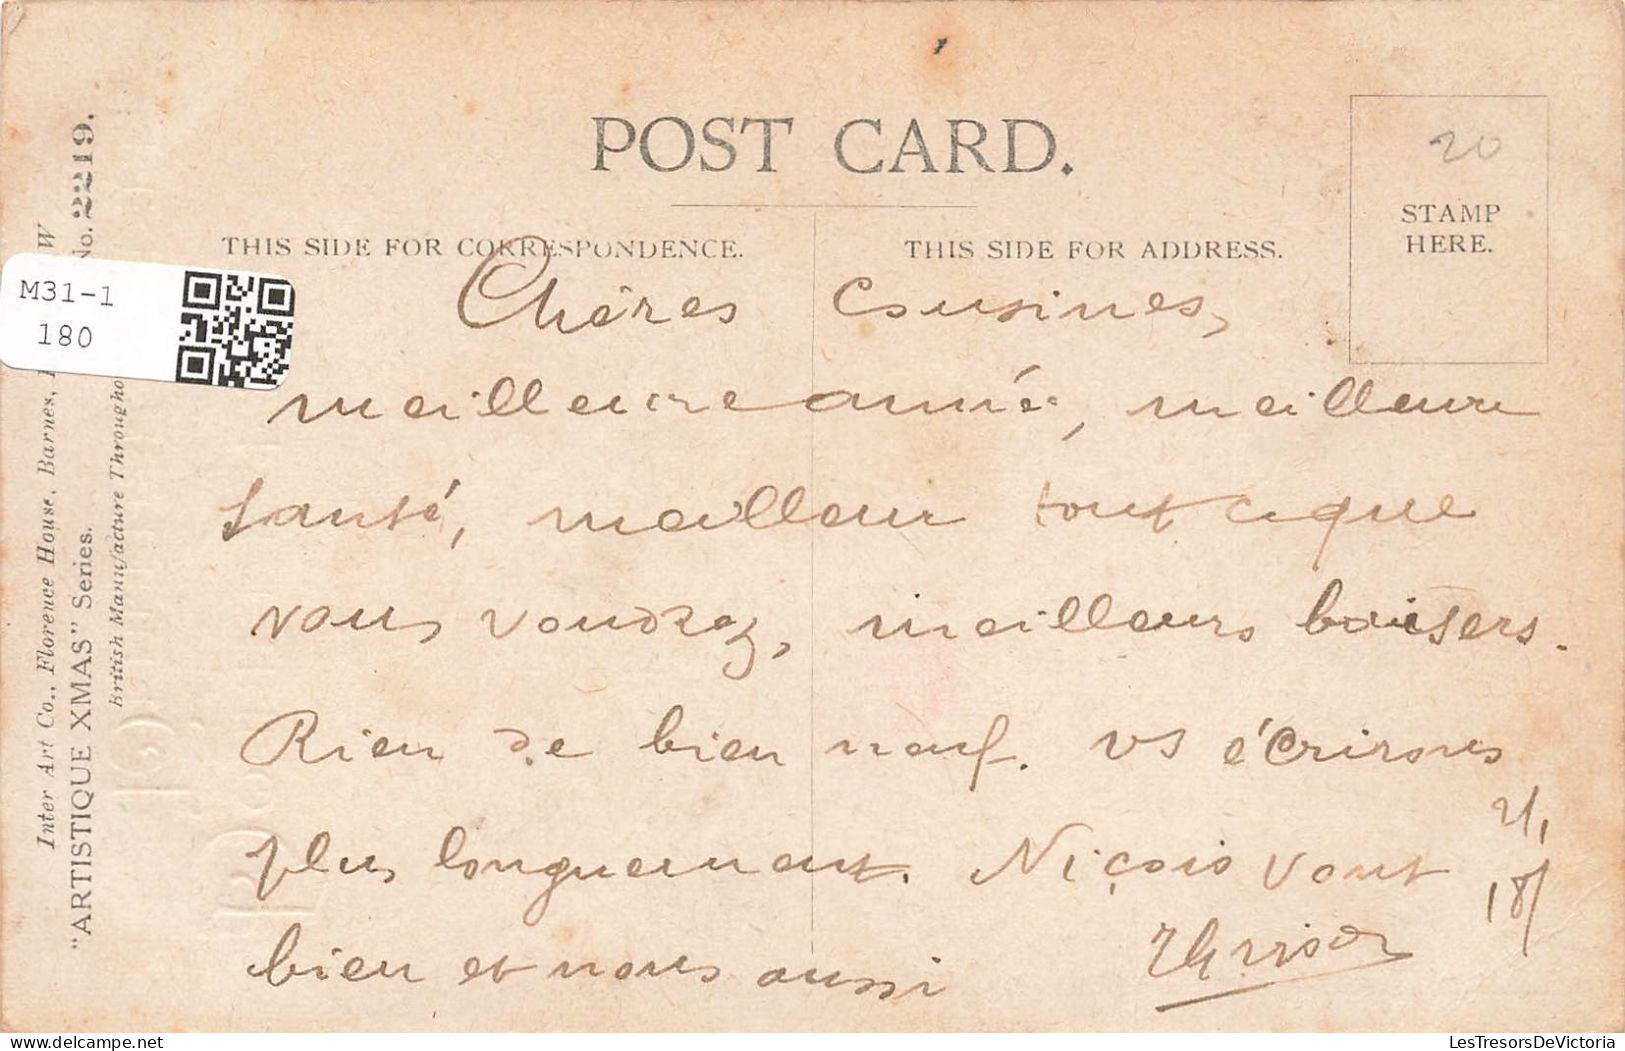 POST CARD.
20
STAMP
HERE.
THIS SIDE FOR CORRESPONDENCE.
THIS SIDE FOR ADDRESS.
Chères Cousines,
meilleure année, meilleure
santé, meilleur tout ce que
vous voudrez, meilleurs baisers.
Rien de bien neuf. vs écrirons
plus longuement. Niçois vont
bien et nous aussi
Inter Art Co., Florence House, Barnes,
"ARTISTIQUE XMAS" Series. No. 2219.
British Manufacture Througho
M31-1
180
LesTresorsDeVictoria